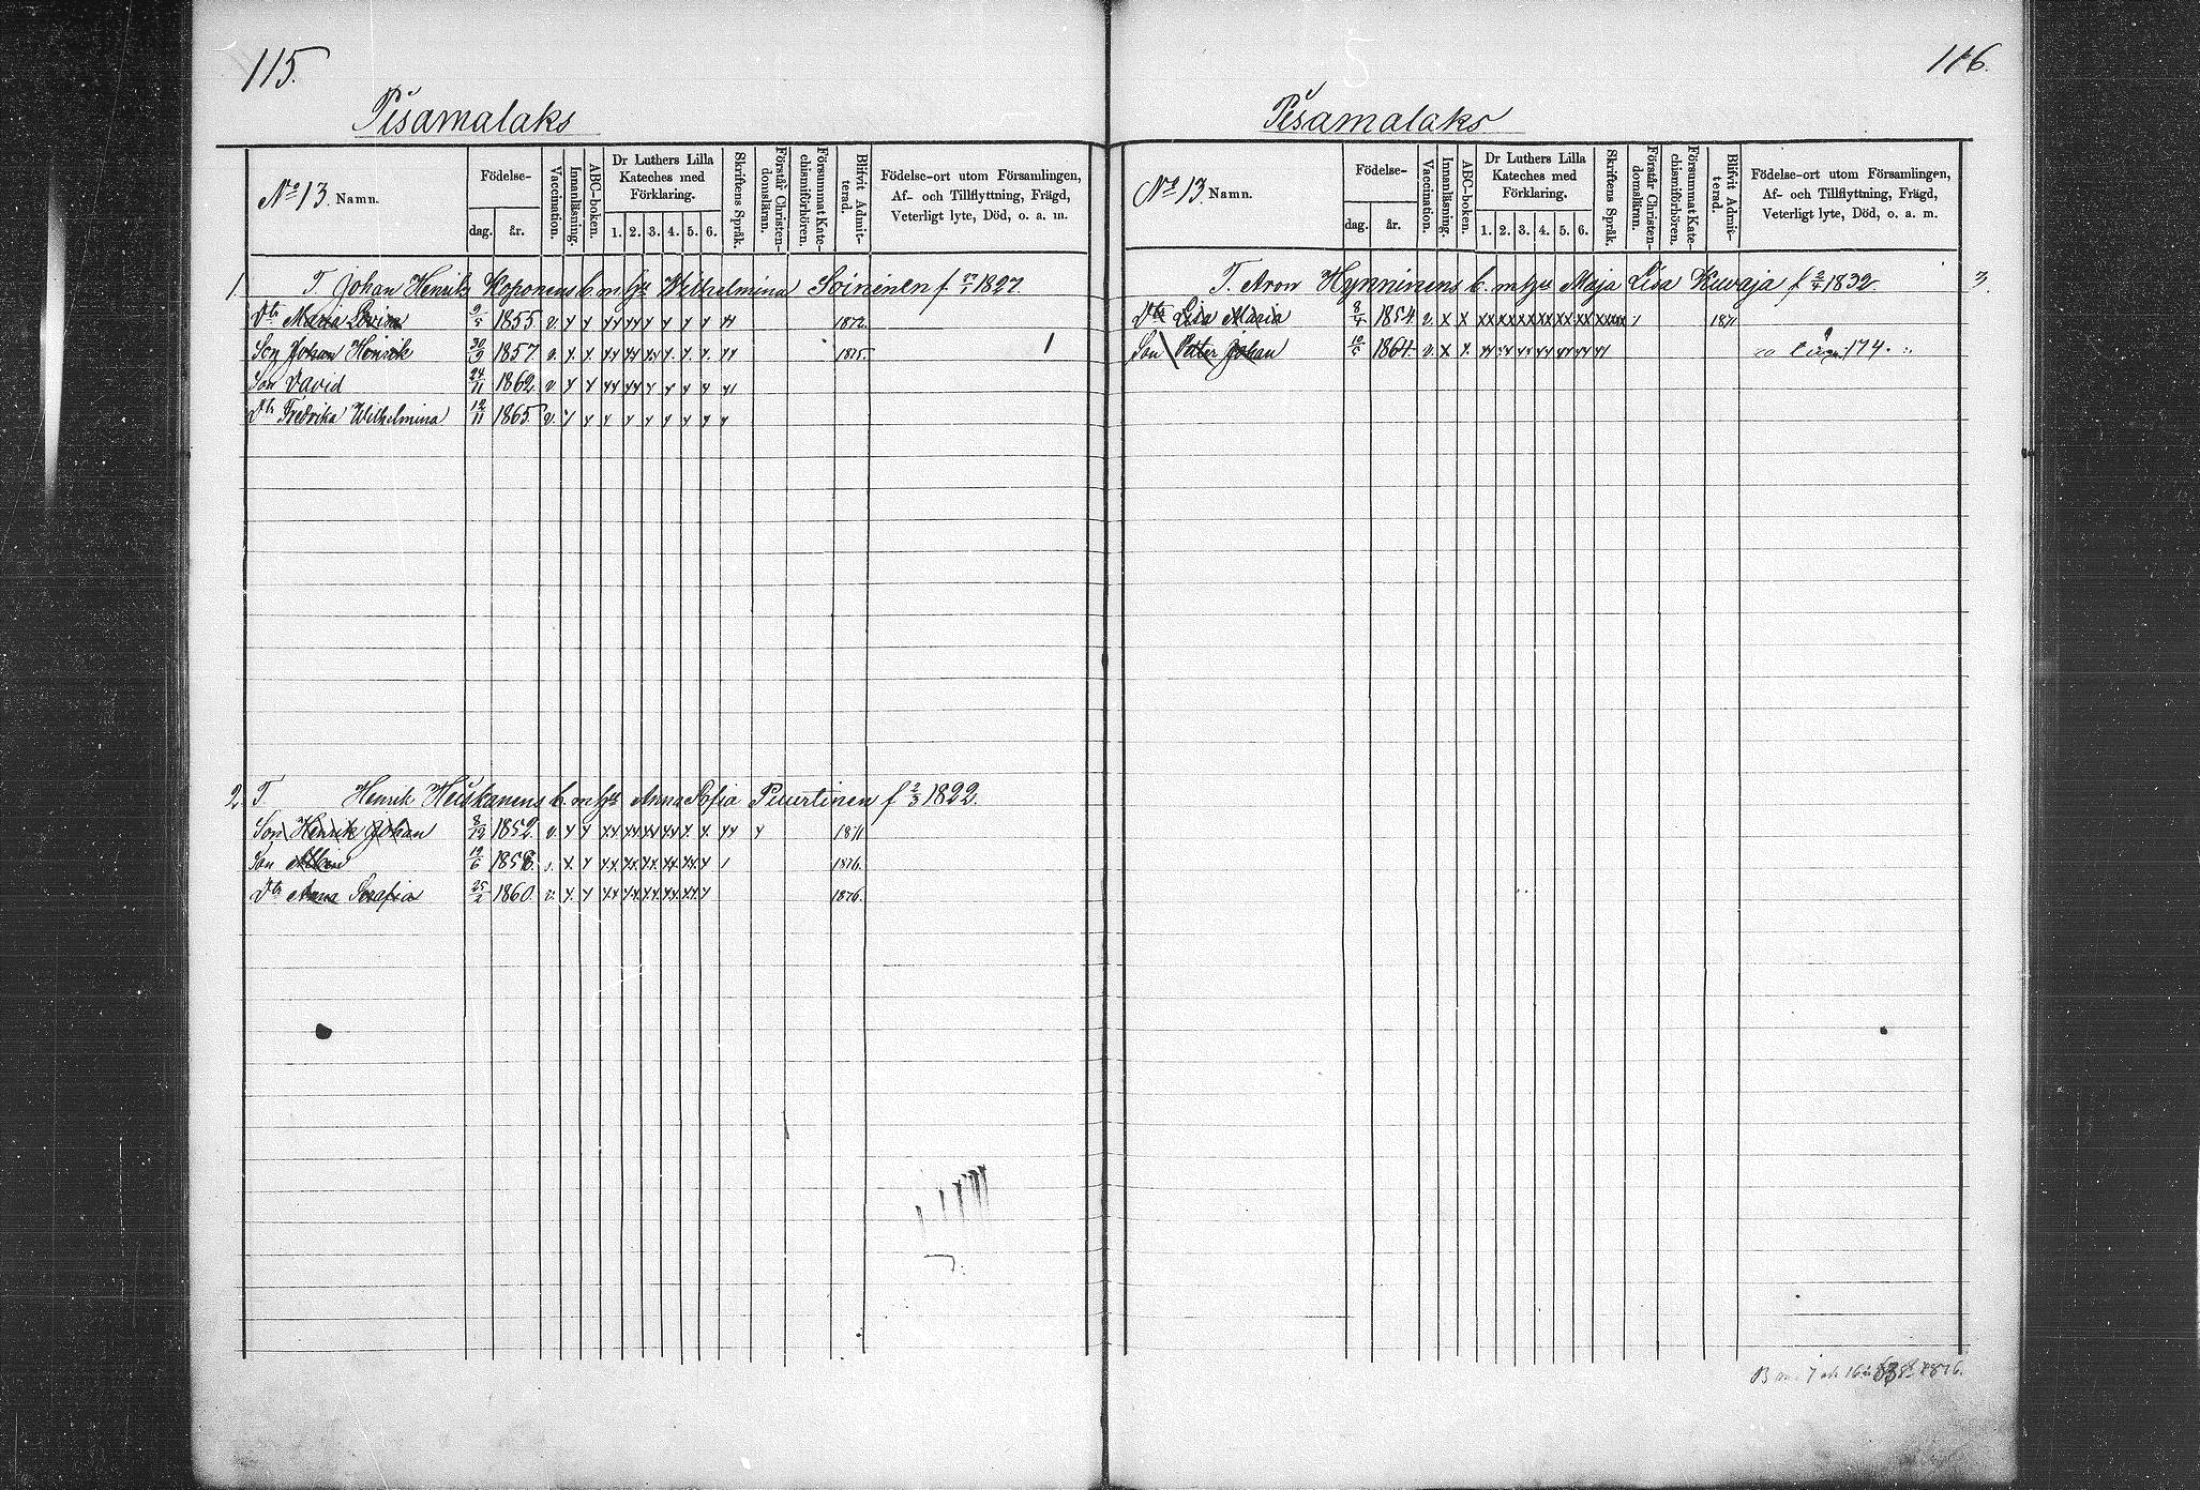 115.
Pisamalaks
No 13. Namn.
Födelse-
dag. år.
Vaccination.
Innanläsning.
ABC-boken.
Dr Luthers Lilla Kateches med Förklaring.
1. 2. 3. 4. 5. 6.
Skriftens Språk.
Förstår Christendomsläran.
Försummat Katechismiförhören.
Blifvit Admitterad.
Födelse-ort utom Församlingen,
Af- och Tillflyttning, Frägd,
Veterligt lyte, Död, o. a. m.
1. T. Johan Henrik Koponens b. m hu Wilhelmina Soininen f 1827
Dtr Maria Lovisa 9/5 1855 v. 1872.
Son Johan Henrik 30/9 1857. v. 1875. 1
Son David 24/11 1862 v.
Dtr Fredrika Wilhelmina 12/11 1865. v.
2. T. Henrik Heiskanens b. m hu Anna Sofia Puurtinen f 2/3 1822.
Son Henrik Johan 8/12 1852. v. 1871
Son Albin 19/6 1858. 1876.
Dtr Anna Serafia 1860. v. 1876.
116.
Pisamalaks
No 13. Namn.
Födelse-
dag. år.
Vaccination.
Innanläsning.
ABC-boken.
Dr Luthers Lilla Kateches med Förklaring.
1. 2. 3. 4. 5. 6.
Skriftens Språk.
Förstår Christendomsläran.
Försummat Katechismiförhören.
Blifvit Admitterad.
Födelse-ort utom Församlingen,
Af- och Tillflyttning, Frägd,
Veterligt lyte, Död, o. a. m.
T. Aron Hynninens b. m hu Maja Lisa Kuvaja f 1832 3.
Dtr Lisa Maria 8/4 1854. v. 1871
Son Petter Johan 1864. v. 174.
1876.